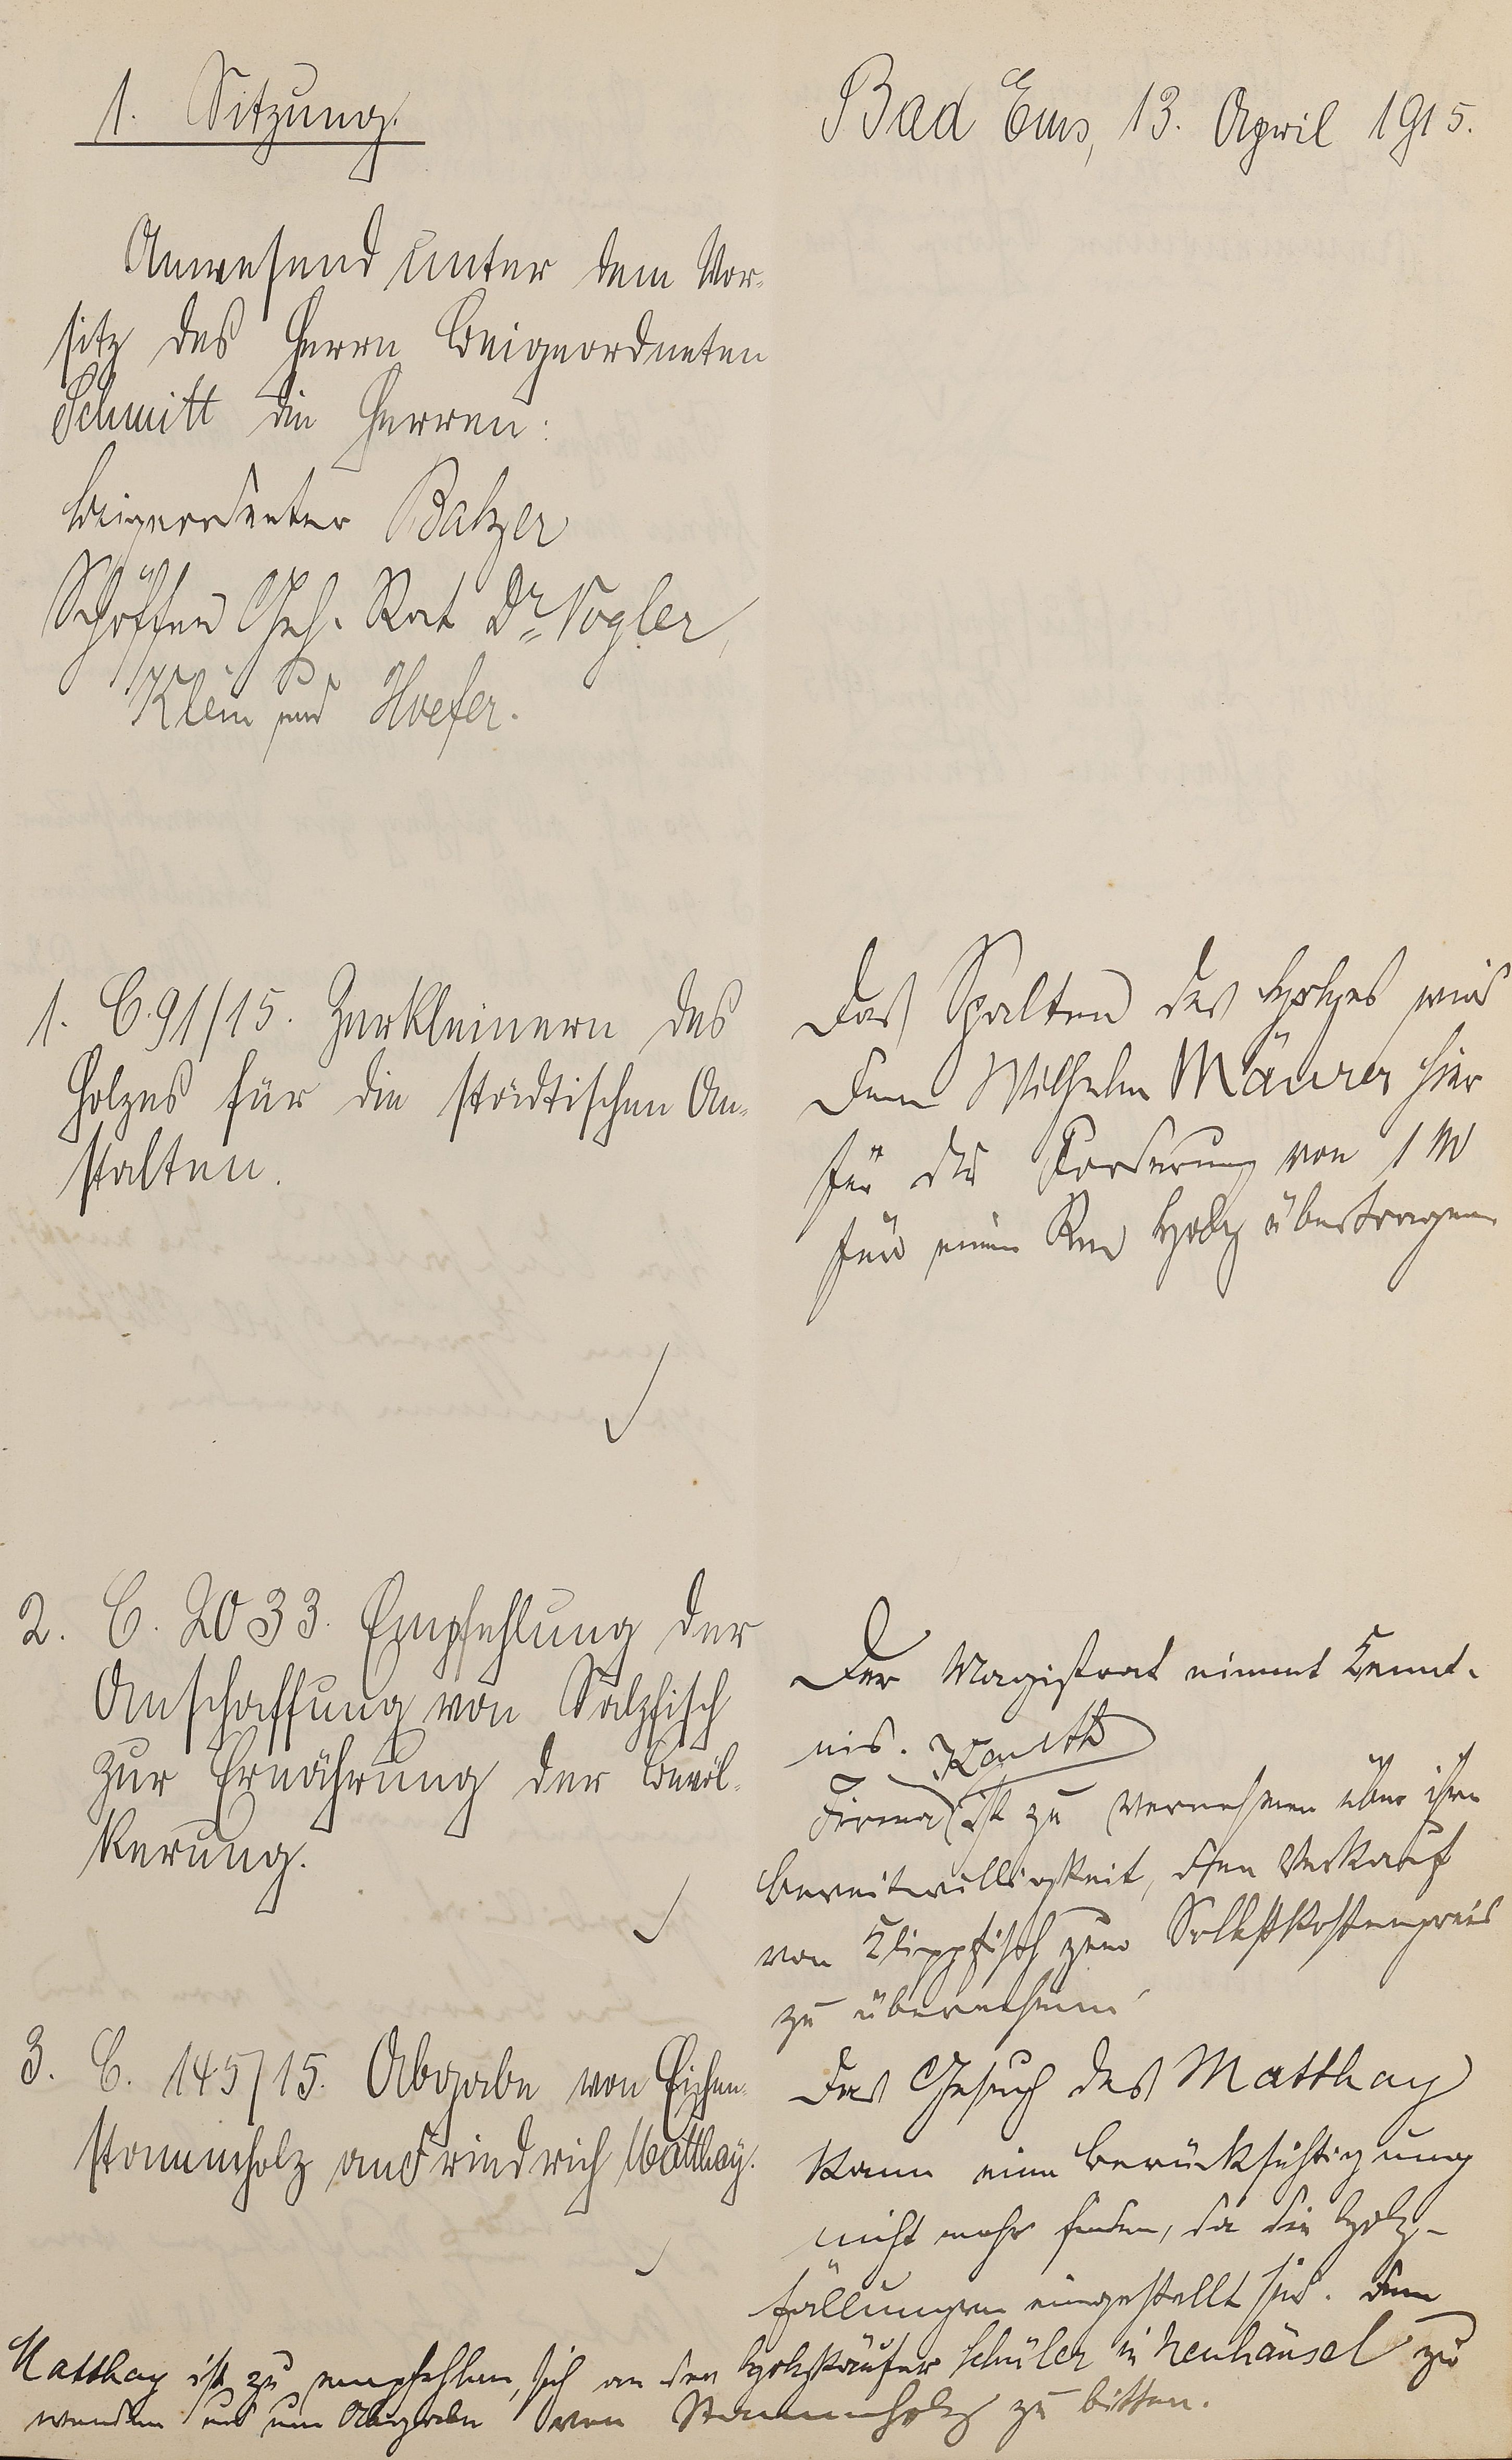 1. Sitzung.
Bad Ems, 13. April 1915.
Anwesend unter dem Vor-
sitz des Herrn Beigeordneten
Schmitt die Herren:
Beigeordneter Balzer
Schöffen Geh. Rat Dr. Vogler,
Klein und Hoefer.
1. C. 91/15. Zerkleinern des
Holzes für die städtischen An-
stalten.
Das Spalten des Holzes wird
dem Wilhelm Mäurer hier
für die Forderung von 1 M
für einen Rm Holz übertragen
2. C. 2033. Empfehlung der
Anschaffung von Salzfisch
zur Ernährung der Bevöl-
kerung.
Der Magistrat nimmt Kennt-
nis.
Firma Kauth ist zu vernehmen über ihre
Bereitwilligkeit, den Verkauf
von Klippfisch zum Selbstkostenpreis
zu übernehmen
3. C. 145/15. Abgabe von Eichen-
stammholz an Friedrich Matthay.
Das Gesuch des Matthay
kann eine Berücksichtigung
nicht mehr finden, da die Holz-
fällungen eingestellt sind. Dem
Matthay ist zu empfehlen, sich an den Holzkäufer Schüler in Neuhäusel zu
wenden und um Abgabe von Stammholz zu bitten.